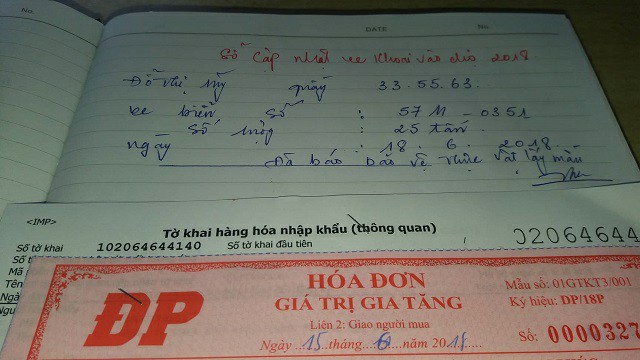 No.
DATE
No.
Sổ cập nhật xe khoai vào dio 2018
Đỗ thị mỹ 33.55.63
xe biển số : 57 11 - 0351
Số lượng : 25 tấn
ngày : 18 . 6 . 2018
Đã báo bảo vệ thực vật lấy mẫu
<IMP>
Tờ khai hàng hóa nhập khẩu (thông quan)
Số tờ khai 102064644140 Số tờ khai đầu tiên 02064644
Số
Mã
Tên
Ngà
Ngu
ĐP
HÓA ĐƠN
GIÁ TRỊ GIA TĂNG
Liên 2: Giao người mua
Ngày 15 tháng 6 năm 2018
Mẫu số: 01GTKT3/001
Ký hiệu: ĐP/18P
Số: 0000327